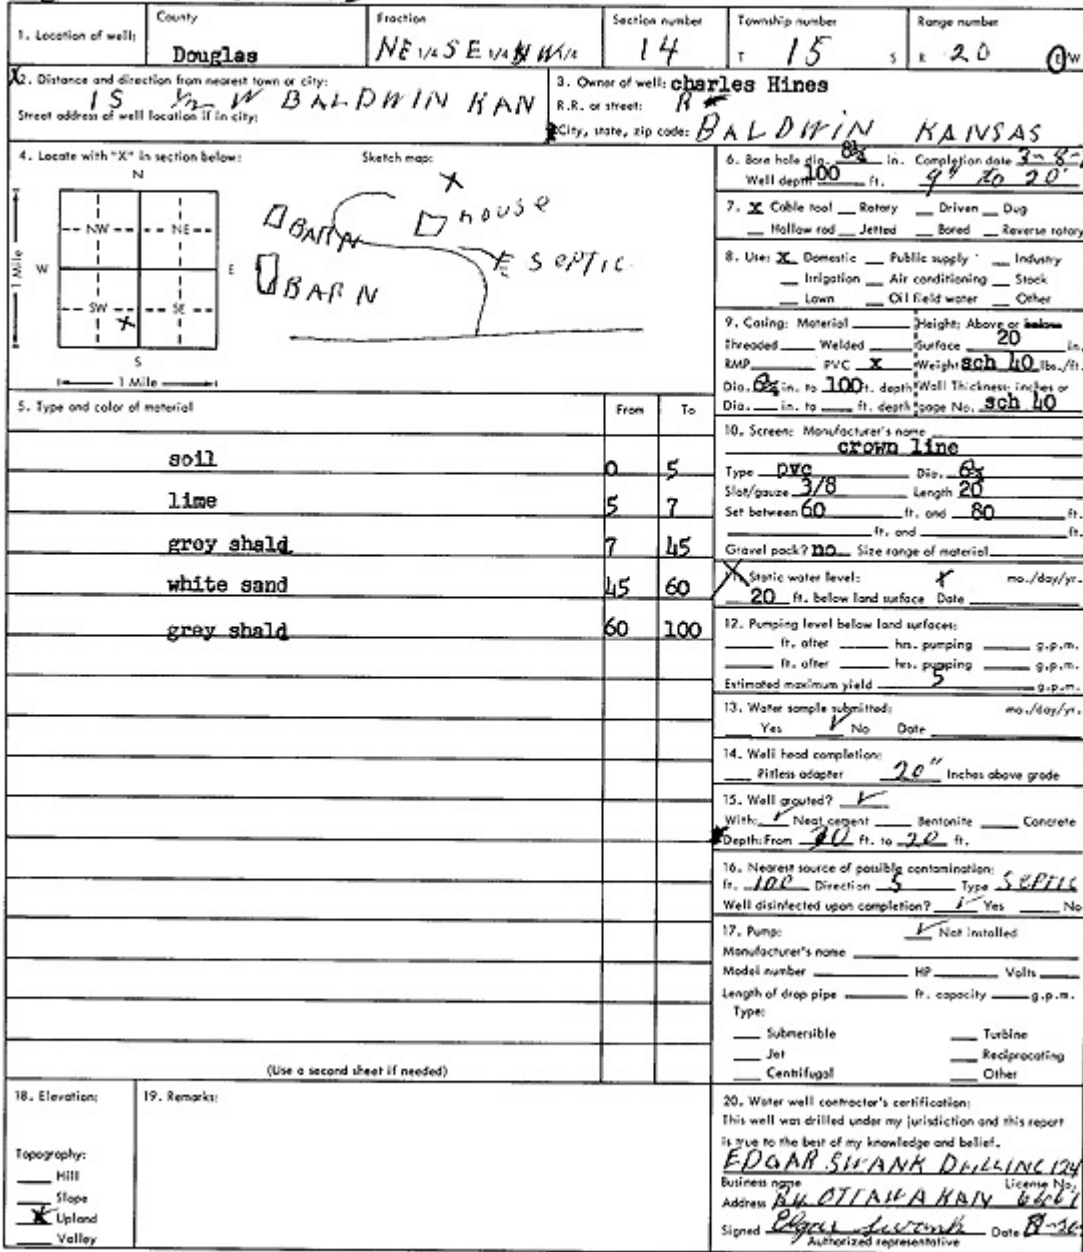 1. Location of well:
County
Douglas
Fraction
NE 1/4 SE 1/4 NW 1/4
Section number
14
Township number
T 15 S
Range number
R 20 E W
2. Distance and direction from nearest town or city:
1 S 1/2 W BALDWIN KAN
Street address of well location if in city:
3. Owner of well: charles Hines
R.R. or street: R
City, state, zip code: BALDWIN KANSAS
4. Locate with "X" in section below:
N
NW NE
W E
SW SE
X
S
1 Mile
1 Mile
Sketch map:
X
house
BARN
SEPTIC
BARN
6. Bore hole dia. in. Completion date 3-8-
Well depth 100 ft. 9" to 20'
7. X Cable tool Rotary Driven Dug
Hollow rod Jetted Bored Reverse rotary
8. Use: X Domestic Public supply Industry
Irrigation Air conditioning Stock
Lawn Oil field water Other
9. Casing: Material Height: Above or below
Threaded Welded Surface 20 in.
RMP PVC X Weight sch 40 lbs./ft.
Dia. in. to 100 ft. depth Wall Thickness: inches or
Dia. in. to ft. depth gage No. sch 40
10. Screen: Manufacturer's name
crown line
Type pvc Dia.
Slot/gauze 3/8 Length 20
Set between 60 ft. and 80 ft.
ft. and ft.
Gravel pack? no Size range of material
11. Static water level: mo./day/yr.
20 ft. below land surface Date
12. Pumping level below land surfaces:
ft. after hrs. pumping g.p.m.
ft. after hrs. pumping g.p.m.
Estimated maximum yield 5 g.p.m.
13. Water sample submitted: mo./day/yr.
Yes ✓ No Date
14. Well head completion:
Pitless adapter 20" Inches above grade
15. Well grouted? ✓
With: ✓ Neat cement Bentonite Concrete
Depth: From ft. to 20 ft.
16. Nearest source of possible contamination:
ft. 100 Direction S Type SEPTIC
Well disinfected upon completion? ✓ Yes No
17. Pump: ✓ Not installed
Manufacturer's name
Model number HP Volts
Length of drop pipe ft. capacity g.p.m.
Type:
Submersible Turbine
Jet Reciprocating
Centrifugal Other
5. Type and color of material From To
soil 0 5
lime 5 7
grey shald 7 45
white sand 45 60
grey shald 60 100
(Use a second sheet if needed)
18. Elevation:
Topography:
Hill
Slope
X Upland
Valley
19. Remarks:
20. Water well contractor's certification:
This well was drilled under my jurisdiction and this report
is true to the best of my knowledge and belief.
EDGAR SWANK DRILLING 124
Business name License No.
Address OTTAWA KAN
Signed Edgar Swank Date
Authorized representative